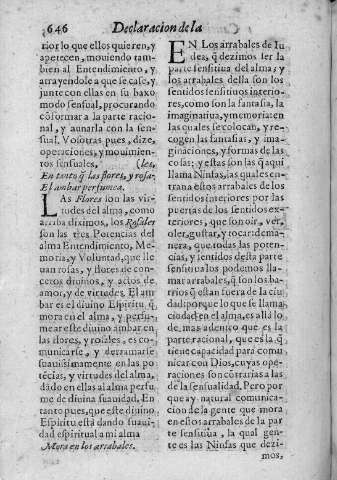 646
Declaracion de la
rior lo que ellos quieren, y
apetecen, moviendo tam
bien al Entendimiento, y
arrayendole a que se case, y
junte con ellas en su baxo
modo sensual, procurando
cõformar a la parte racio
nal, y aunarla con la sen-
sual. Vosotras pues, dize,
operaciones, y movimien
tos sensuales, (les,
En tanto q̃ las flores, y rosa-
El ambar perfumea.
LAs Flores son las vir-
tudes del alma, como
arriba diximos, los Rosales
son las tres Potencias del
alma Entendimiento, Me-
moria, y Voluntad, que lle
uan rosas, y flores de con-
ceptos diuinos, y actos de
amor, y de virtudes. El am
bar es el diuino Espiritu q̃
mora en el alma, y perfu-
mear este diuino ambar en
las flores, y rosales, es co-
municarse, y derramarse
suauissimamente en las po
tẽcias, y virtudes del alma,
dado en ellas al alma perfu
me de diuina suauidad. En
tanto pues, que este diuino
Espiritu està dando suaui-
dad espiritual a mi alma
Mora en los arrabales.
EN Los arrabales de Iu
dea, q̃ dezimos ser la
parte sensitiua del alma; y
los arrabales della son los
sentidos sensitiuos interio-
res, como son la fantasia, la
imaginatiua, y memoria en
las quales se colocan, y re-
cogen las fantasias, y ima-
ginaciones, y formas de las
cosas: y estas son las q̃ aqui
llama Ninfas, las quales en-
tran a estos arrabales de los
sentidos interiores por las
puertas de los sentidos ex-
teriores, que son oir, ver,
oler, gustar, y tocar: de ma-
nera, que todas las poten-
cias, y sentidos desta parte
sensitiua los podemos lla-
mar arrabales, q̃ son los ba-
rrios q̃ estan fuera de la ciu
dad: porque lo que se llama
ciudad en el alma, es allà lo
de mas adentro que es la
parte racional, que es la q̃
tiene capacidad para comu
nicar con Dios, cuyas ope-
raciones son cõtrarias a las
de la sensualidad. Pero por
que ay natural comunica-
cion de la gente que mora
en estos arrabales de la par
te sensitiua, la qual gen-
te es las Ninfas que dezi-
mos,